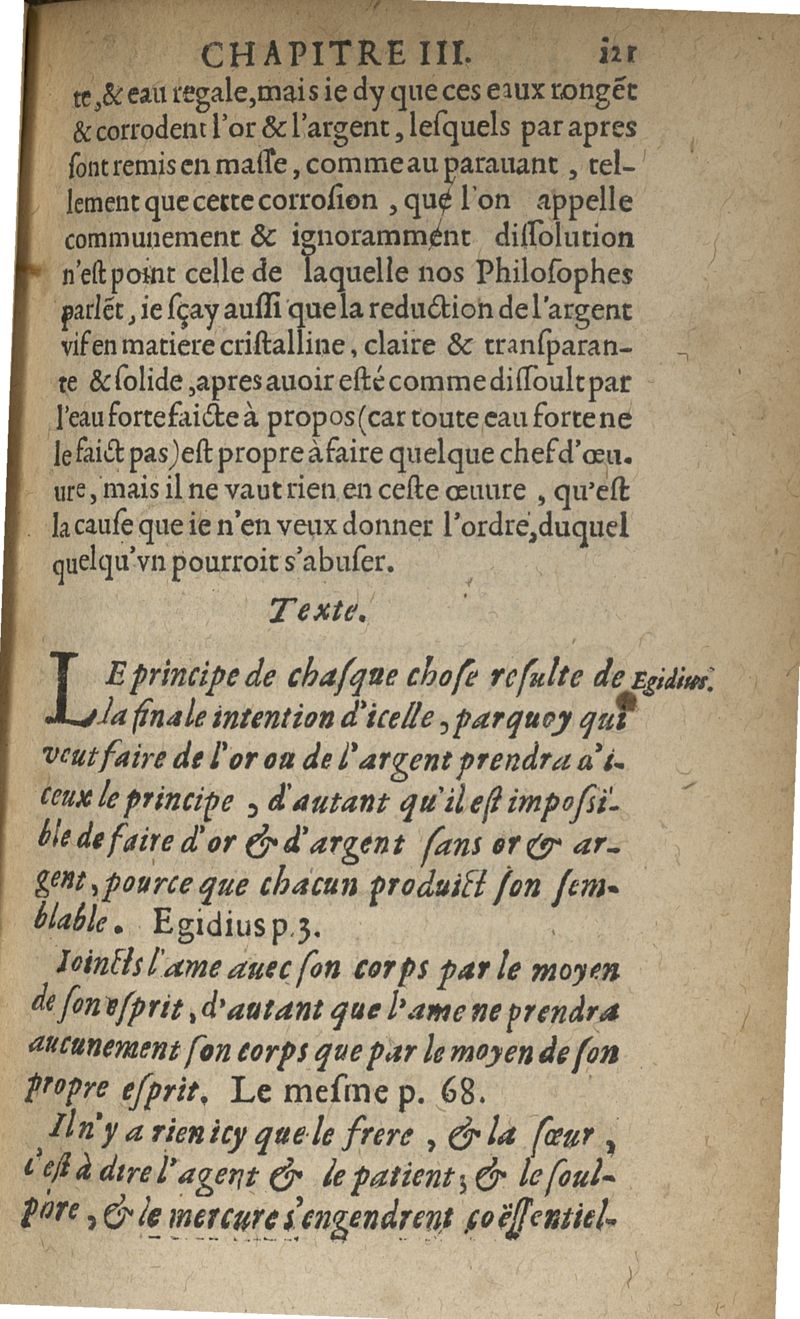 CHAPITRE III. 121
te,& eau regale,mais ie dy que ces eaux rongẽt
& corrodent l'or & l'argent, leſquels par apres
ſont remis en maſſe, comme au parauant, tel-
lement que cette corroſion, que l'on appelle
communement & ignoramment diſſolution
n'eſt point celle de laquelle nos Philoſophes
parlẽt, ie ſçay auſſi que la reduction de l'argent
vif en matiere criſtalline, claire & tranſparan-
te & ſolide, apres auoir eſté comme diſſoult par
l'eau forte faicte à propos (car toute eau forte ne
le faict pas) eſt propre à faire quelque chef d'œu.
ure, mais il ne vaut rien en ceſte œuure, qu'eſt
la cauſe que ie n'en veux donner l'ordre, duquel
quelqu'vn pourroit s'abuſer.
Texte.
LE principe de chaſque choſe reſulte de Egidius.
la finale intention d'icelle, parquoy qui
veut faire de l'or ou de l'argent prendra d'i-
ceux le principe, d'autant qu'il eſt impoſſi-
ble de faire d'or & d'argent ſans or & ar-
gent, pource que chacun produict ſon ſem-
blable. Egidius p.3.
Ioincts l'ame auec ſon corps par le moyen
de ſon eſprit, d'autant que l'ame ne prendra
aucunement ſon corps que par le moyen de ſon
propre eſprit. Le meſme p. 68.
Il n'y a rien icy que le frere, & la ſœur,
c'eſt à dire l'agent & le patient; & le ſoul-
phre, & le mercure s'engendrent coëſſentiel-